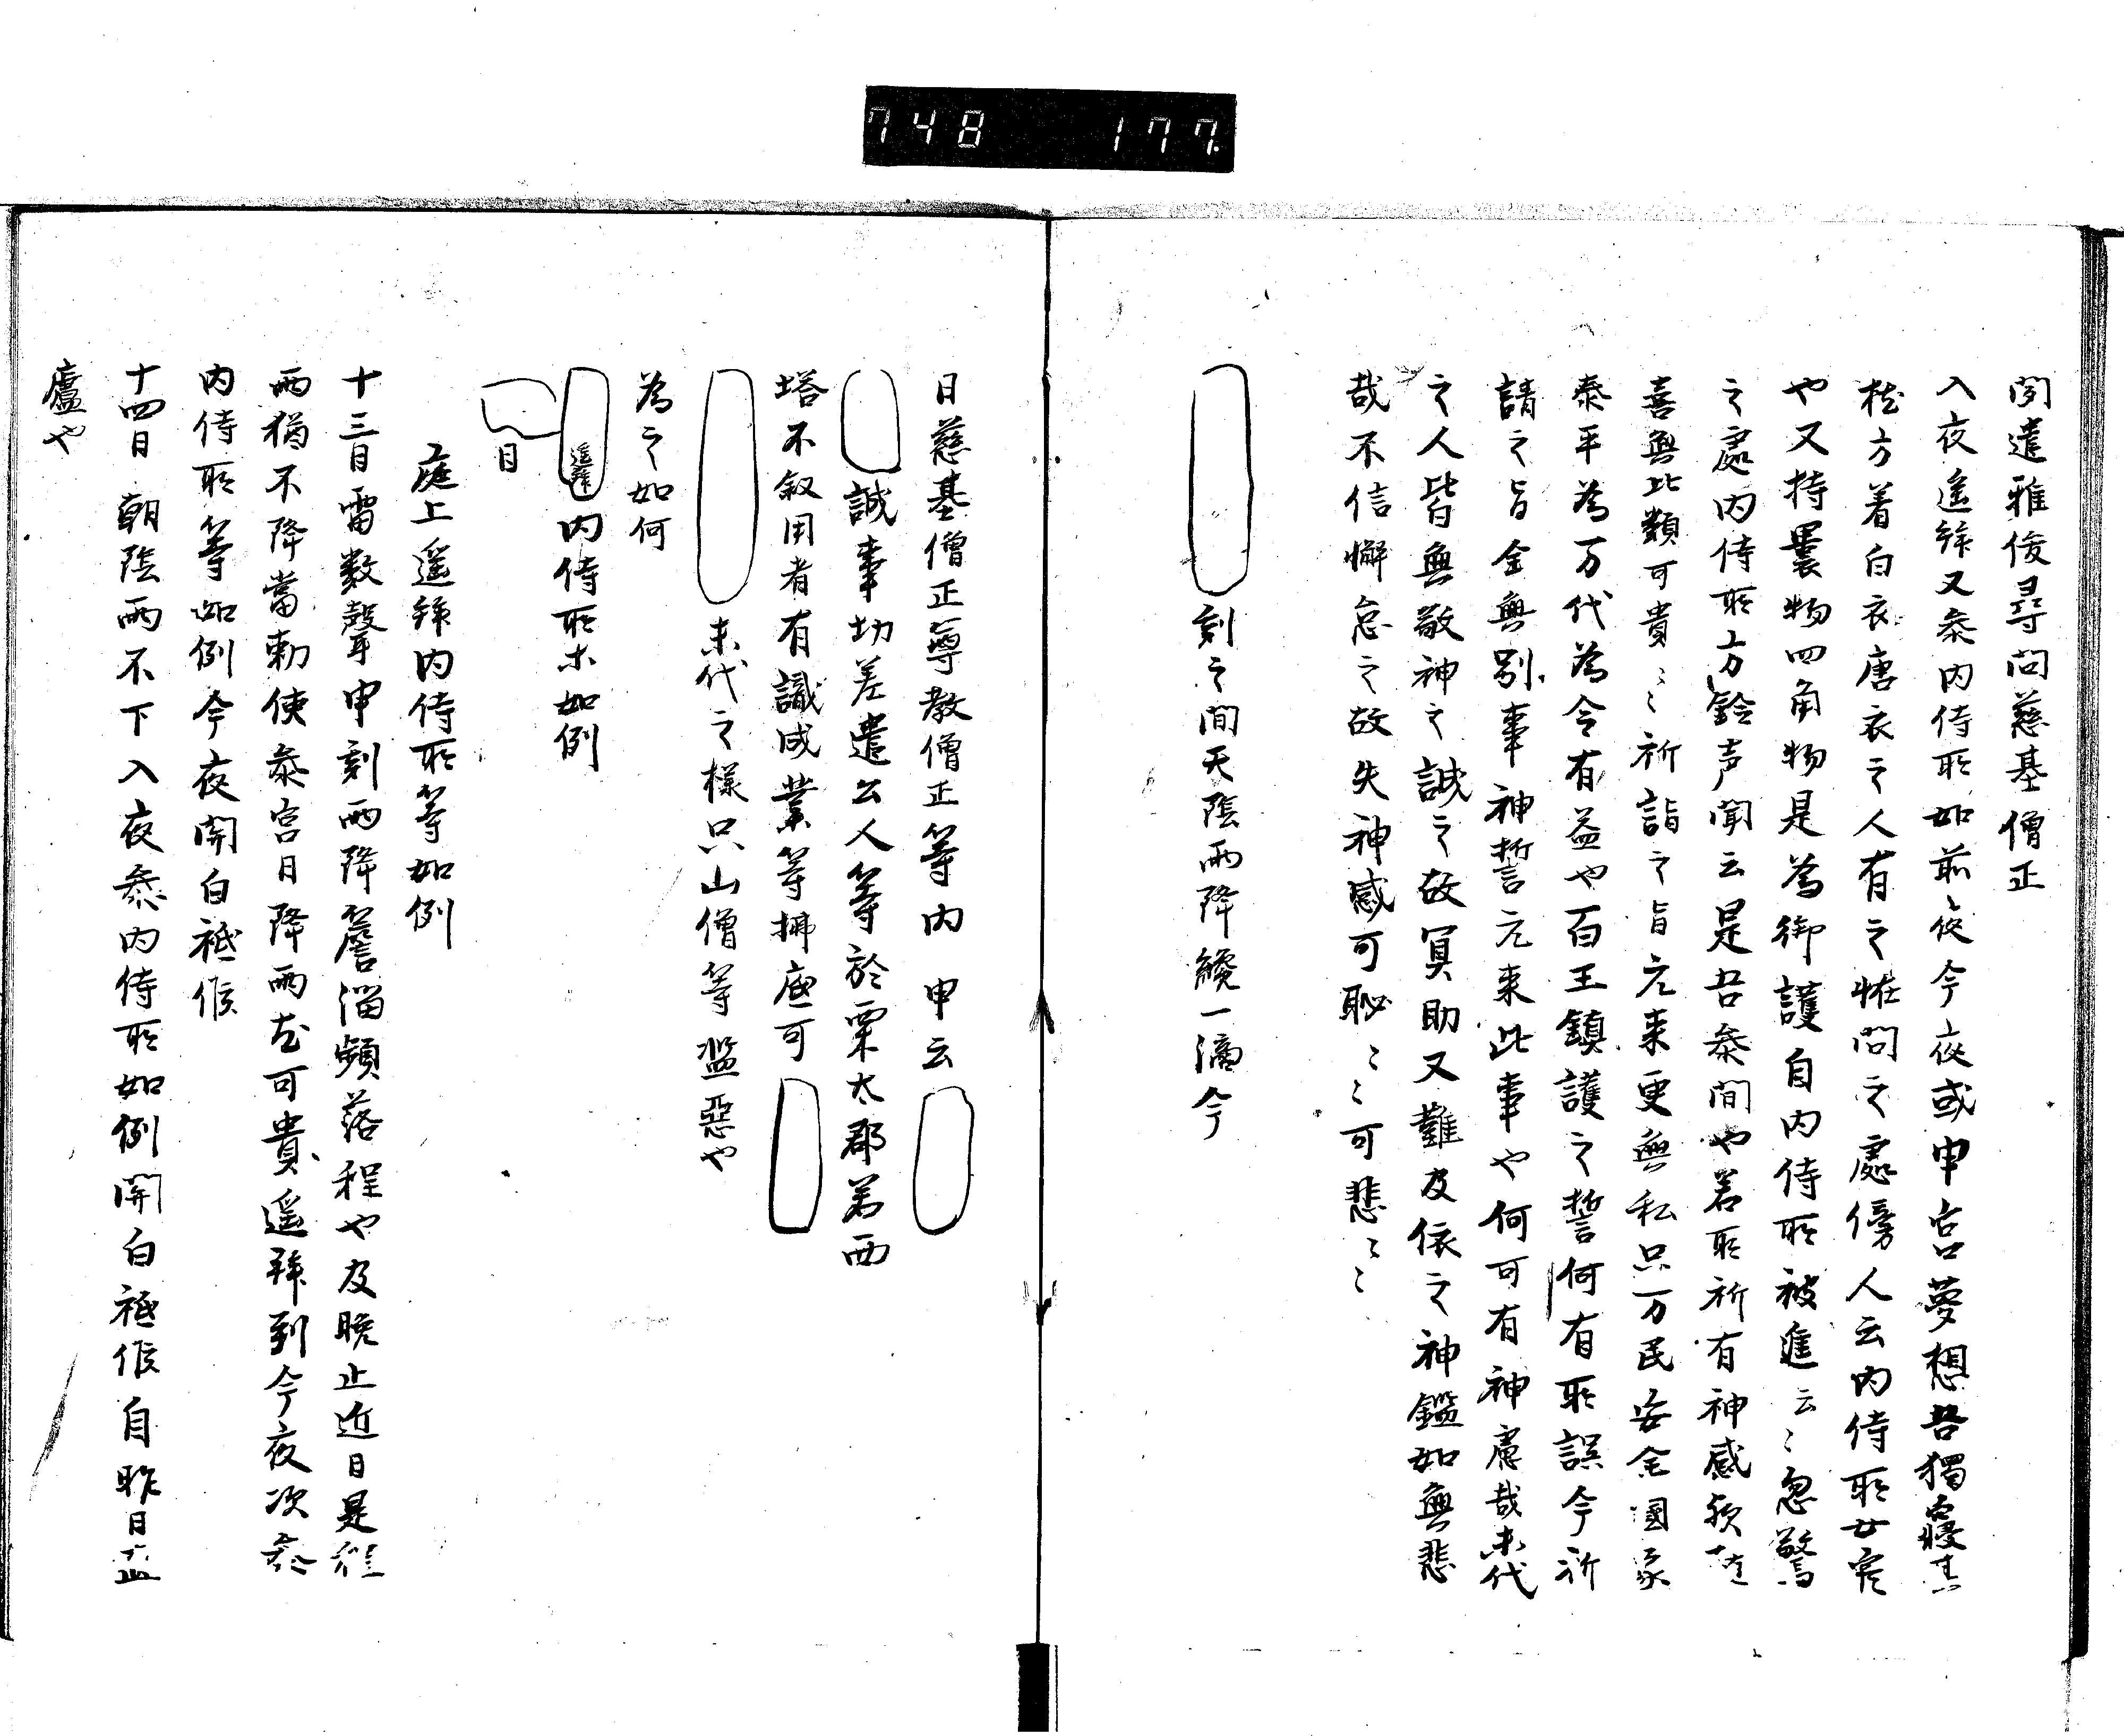 748 177
間遣雅俊尋問慈基僧正
入夜遥拝又参内侍所如前夜今夜或申宮夢想吾獨寝
枕方着白衣唐衣之人有之恠問之處傍人云内侍所女官
や又持裹物四角物是為御護自内侍所被進云〻忽驚
之處内侍所方鈴声聞云是吾参間や若所祈有神感
喜無比類可貴〻〻祈詣之旨元来更無私只万民安全國家
泰平為万代為今有益や百王鎮護之誓何有所誤今祈
請之旨全無別事神誓元来此事や何可有神慮哉末代
之人皆無敬神之誠之故冥助又難及依之神鑑如無悲
哉不信懈怠之故失神感可恥〻〻可悲〻〻
刻之間天陰雨降纔一滴今
日慈基僧正尊教僧正等内 申云
誠事切差遣公人等於栗太郡若西
塔不叙用者有識成業等拂底可
末代之様只山僧等濫惡や
為之如何
遥拝内侍所木如例
日
庭上遥拝内侍所等如例
十三日雷数聲申刻雨降簷溜頻落程や及晩止近日是程
雨猶不降當勅使参宮日降雨尤可貴遥拝到今夜次参
内侍所等如例今夜関白祗候
十四日 朝陰雨不下入夜参内侍所如例関白祗候自昨日
廬や